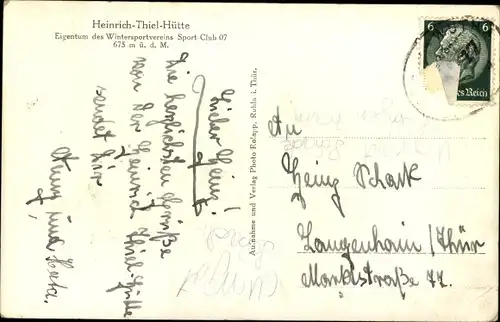 Heinrich-Thiel-Hütte
Eigentum des Wintersportvereins Sport-Club 07
675 m ü. d. M.
Lieber Heinz!
Die herzlichsten Grüße
von der Heinrich Thiel-Hütte
sendet Dir
und Herta.
Aufnahme und Verlag Photo Ruhla i. Thür.
6 6
Reich
An
Heinz Schack
Langenhain/Thür
Marktstraße 77.